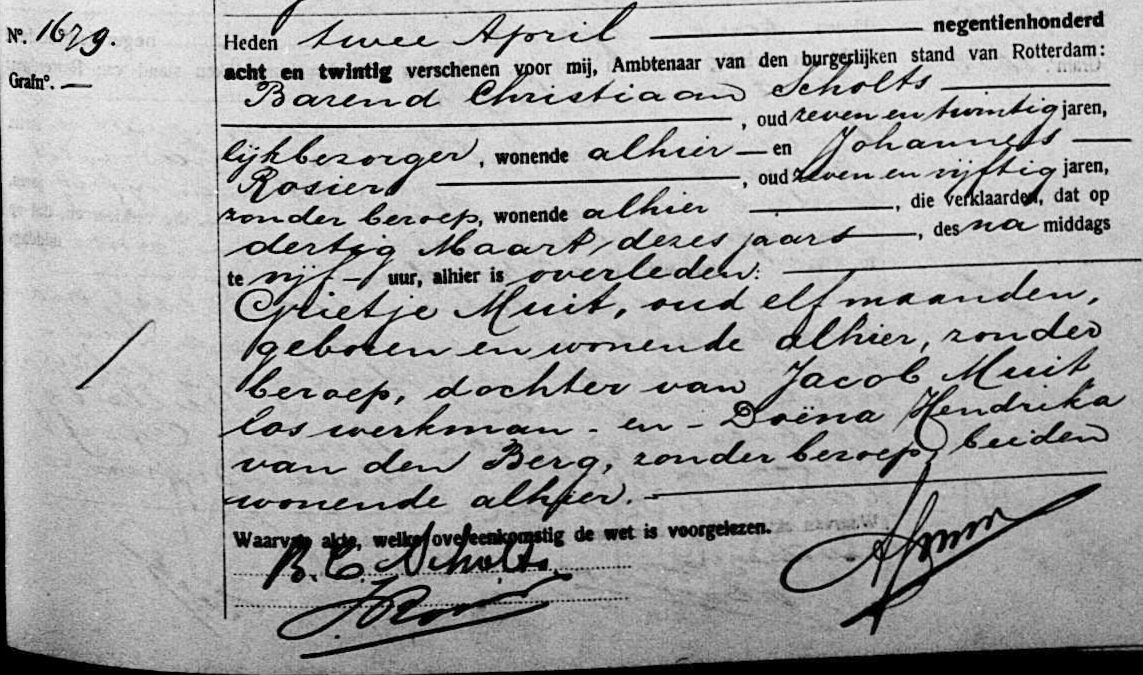 Nº. 1679.
Grafnº. —
Heden twee April — negentienhonderd
acht en twintig verschenen voor mij, Ambtenaar van den burgerlijken stand van Rotterdam:
Barend Christiaan Scholts —
—, oud zeven en twintig jaren,
lijkbezorger, wonende alhier — en Johannes —
Rosier —, oud zeven en vijftig jaren,
zonder beroep, wonende alhier —, die verklaarden, dat op
dertig Maart dezes jaars —, des na middags
te vijf — uur, alhier is overleden: —
Grietje Muit, oud elf maanden,
geboren en wonende alhier, zonder
beroep, dochter van Jacob Muit,
los werkman - en - Doëna Hendrika
van den Berg, zonder beroep, beiden
wonende alhier. —
Waarvan akte, welke overeenkomstig de wet is voorgelezen.
B. C. Scholts.